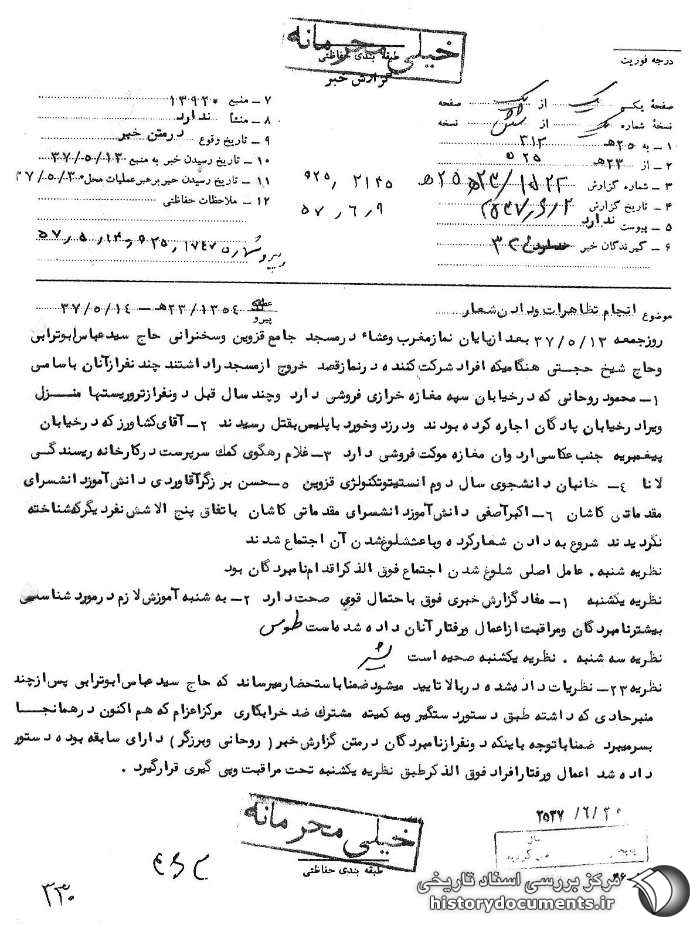 خیلی محرمانه
طبقه بندی حفاظتی
گزارش خبر
درجه فوریت
صفحهٔ یک از یک صفحه
نسخهٔ شماره از نسخه
۱ ـ به ۲۵هـ ۳۱۲
۲ ـ از ۲۳هـ ۵۲۵
۳ ـ شماره گزارش
۴ ـ تاریخ گزارش ۲۵۳۷/۶/۲
۵ ـ پیوست ندارد
۶ ـ گیرندگان خبر
۹۲۵٫ ۲۱۴۵
۵۷٫۶٫۹
۷ ـ منبع ۱۳۹۲۰
۸ ـ منشأ ندارد
۹ ـ تاریخ وقوع درمتن خبر
۱۰ ـ تاریخ رسیدن خبر به منبع ۳۷/۵/۱۳
۱۱ ـ تاریخ رسیدن خبر برهبر عملیات محل ۳۷/۵/۳۰
۱۲ ـ ملاحظات حفاظتی
۵۷٫۵٫۱۴
موضوع انجام تظاهرات ودادن شعار
عطف
پیرو ۲۳/۱۳۵۴هـ ـ ۳۷/۵/۱۴
روزجمعه ۳۷/۵/۱۳ بعد ازپایان نمازمغرب وعشاء درمسجد جامع قزوین وسخنرانی حاج سیدعباس ابوترابی
وحاج شیخ حجتی هنگامیکه افراد شرکت کننده درنمازقصد خروج ازمسجد راداشتند چند نفرازآنان باسامی
۱ـ محمود روحانی که درخیابان سپه مغازه خرازی فروشی دارد وچند سال قبل دونفرازتروریستها منزل
ویرادرخیابان پادگان اجاره کرده بودند ودرزد وخورد باپلیس بقتل رسیدند ۲ـ آقای کشاورز که درخیابان
پیغمبریه جنب عکاسی ارد وان مغازه موکت فروشی دارد ۳ـ غلام رهگوی کمك سرپرست درکارخانه ریسندگی
لانا ۴ـ خانبان دانشجوی سال دوم انستیتوتکنولژی قزوین ۵ـ حسن برزگرآقاوردی دانش آموزدانشسرای
مقدماتی کاشان ۶ـ اکبرآصفی دانش آموزدانشسرای مقدماتی کاشان باتفاق پنج الاشش نفردیگرکه شناخته
نگردیدند شروع به دادن شعارکرده وباعث شلوغ شدن آن اجتماع شدند
نظریه شنبه . عامل اصلی شلوغ شدن اجتماع فوق الذکراقدام نامبردگان بود
نظریه یکشنبه ۱ـ مفاد گزارش خبری فوق باحتمال قوی صحت دارد ۲ـ به شنبه آموزش لازم درمورد شناسی
بیشترنامبردگان ومراقبت ازاعمال ورفتارآنان داده شده است طوس
نظریه سه شنبه . نظریه یکشنبه صحیح است
نظریه ۲۳ـ نظریات داده شده دربالا تایید میشود ضمنا باستحضارمیرساند که حاج سیدعباس ابوترابی پس ازچند
منبرحادی که داشته طبق دستوردستگیر وبه کمیته مشترك ضد خرابکاری مرکزاعزام که هم اکنون درهمانجا
بسرمیبرد ضمنا باتوجه باینکه دونفرازنامبردگان درمتن گزارش خبر (روحانی وبرزگر) دارای سابقه بوده دستور
داده شد اعمال ورفتارافراد فوق الذکرطبق نظریه یکشنبه تحت مراقبت وپی گیری قرارگیرد .
خیلی محرمانه
طبقه بندی حفاظتی
۲۵۳۷/۶/۲۰
۳۳۰
مرکز بررسی اسناد تاریخی
historydocuments.ir